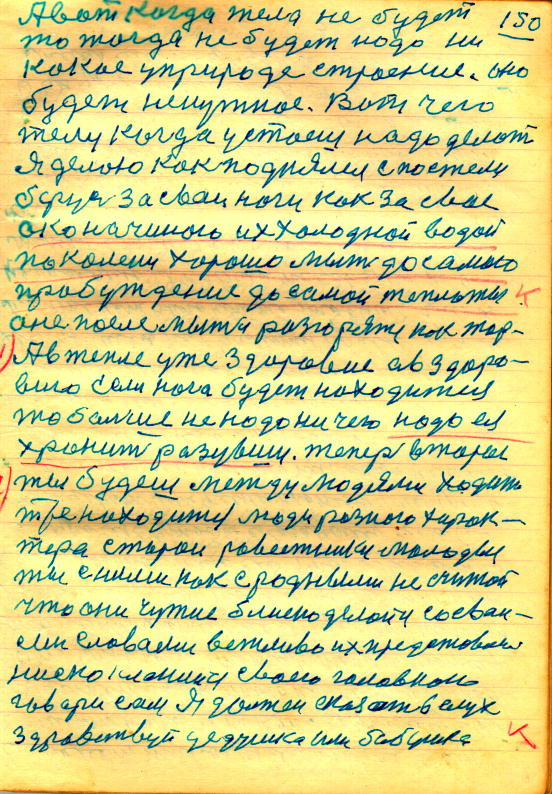 150
А вот когда тела не будет
то тогда не будет надо ни
какое уприроде строение. оно
будет ненужное. Вот чего
телу когда устаеш надо делат
Я делаю как поднялся спостели
беруся за сваи ноги как за свае
оканачиного их холодной водой
поколени хорошо мыт досамого
прабуждение до самой теплоты.
оне после мытя разгорятся как жар-
Автепле уже здоровие а в здоро-
вию если нога будет находится
то болшие ненадо ни чего надо ея
хранит разувши. тепер второе
ты будеш между людями ходит
тре находится люди разного харак-
тера старои равестники молодыи
ты сними как сродными не считай
что они чужие близко делайся сосваи-
ми словами вежливо их
своего головного
говари сам Я должен сказат вслух
здравствуй дедушка или бабушка